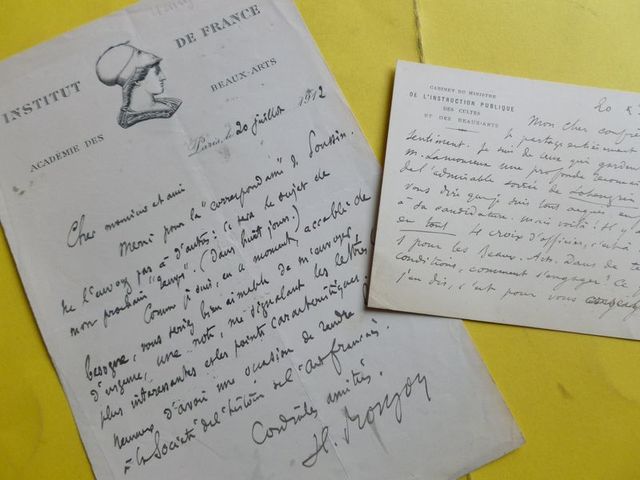 INSTITUT DE FRANCE
ACADÉMIE DES BEAUX-ARTS
Paris, 20 juillet 1912
Cher monsieur et ami
Merci pour la "correspondance" de Poussin.
Ne l'envoyez pas à d'autres: ce sera le sujet de
mon prochain "Temps". (Dans huit jours.)
Comme je suis, en ce moment, accablé de
besogne, vous seriez bien aimable de m'envoyer
d'urgence, une note, me signalant les lettres
plus intéressantes et les points caractéristiques.
heureux d'avoir une occasion de rendre
à la Société de l'histoire de l'Art français.
Cordiales amitiés.
H. Roujon
CABINET DU MINISTRE
DE L'INSTRUCTION PUBLIQUE
DES CULTES
ET DES BEAUX-ARTS
20
Mon cher
je partage entièrement
sentiment. Je suis de ceux qui gardent
M. Lamoureux une profonde
de l'admirable soirée de Lohengrin
vous dire que je suis tout acquis
à sa candidature. mais voilà! Il y
en tout 4 croix d'officier, c'est à
1 pour les Beaux-Arts. Dans de
conditions, comment s'engager? Ce
j'en dis, c'est pour vous